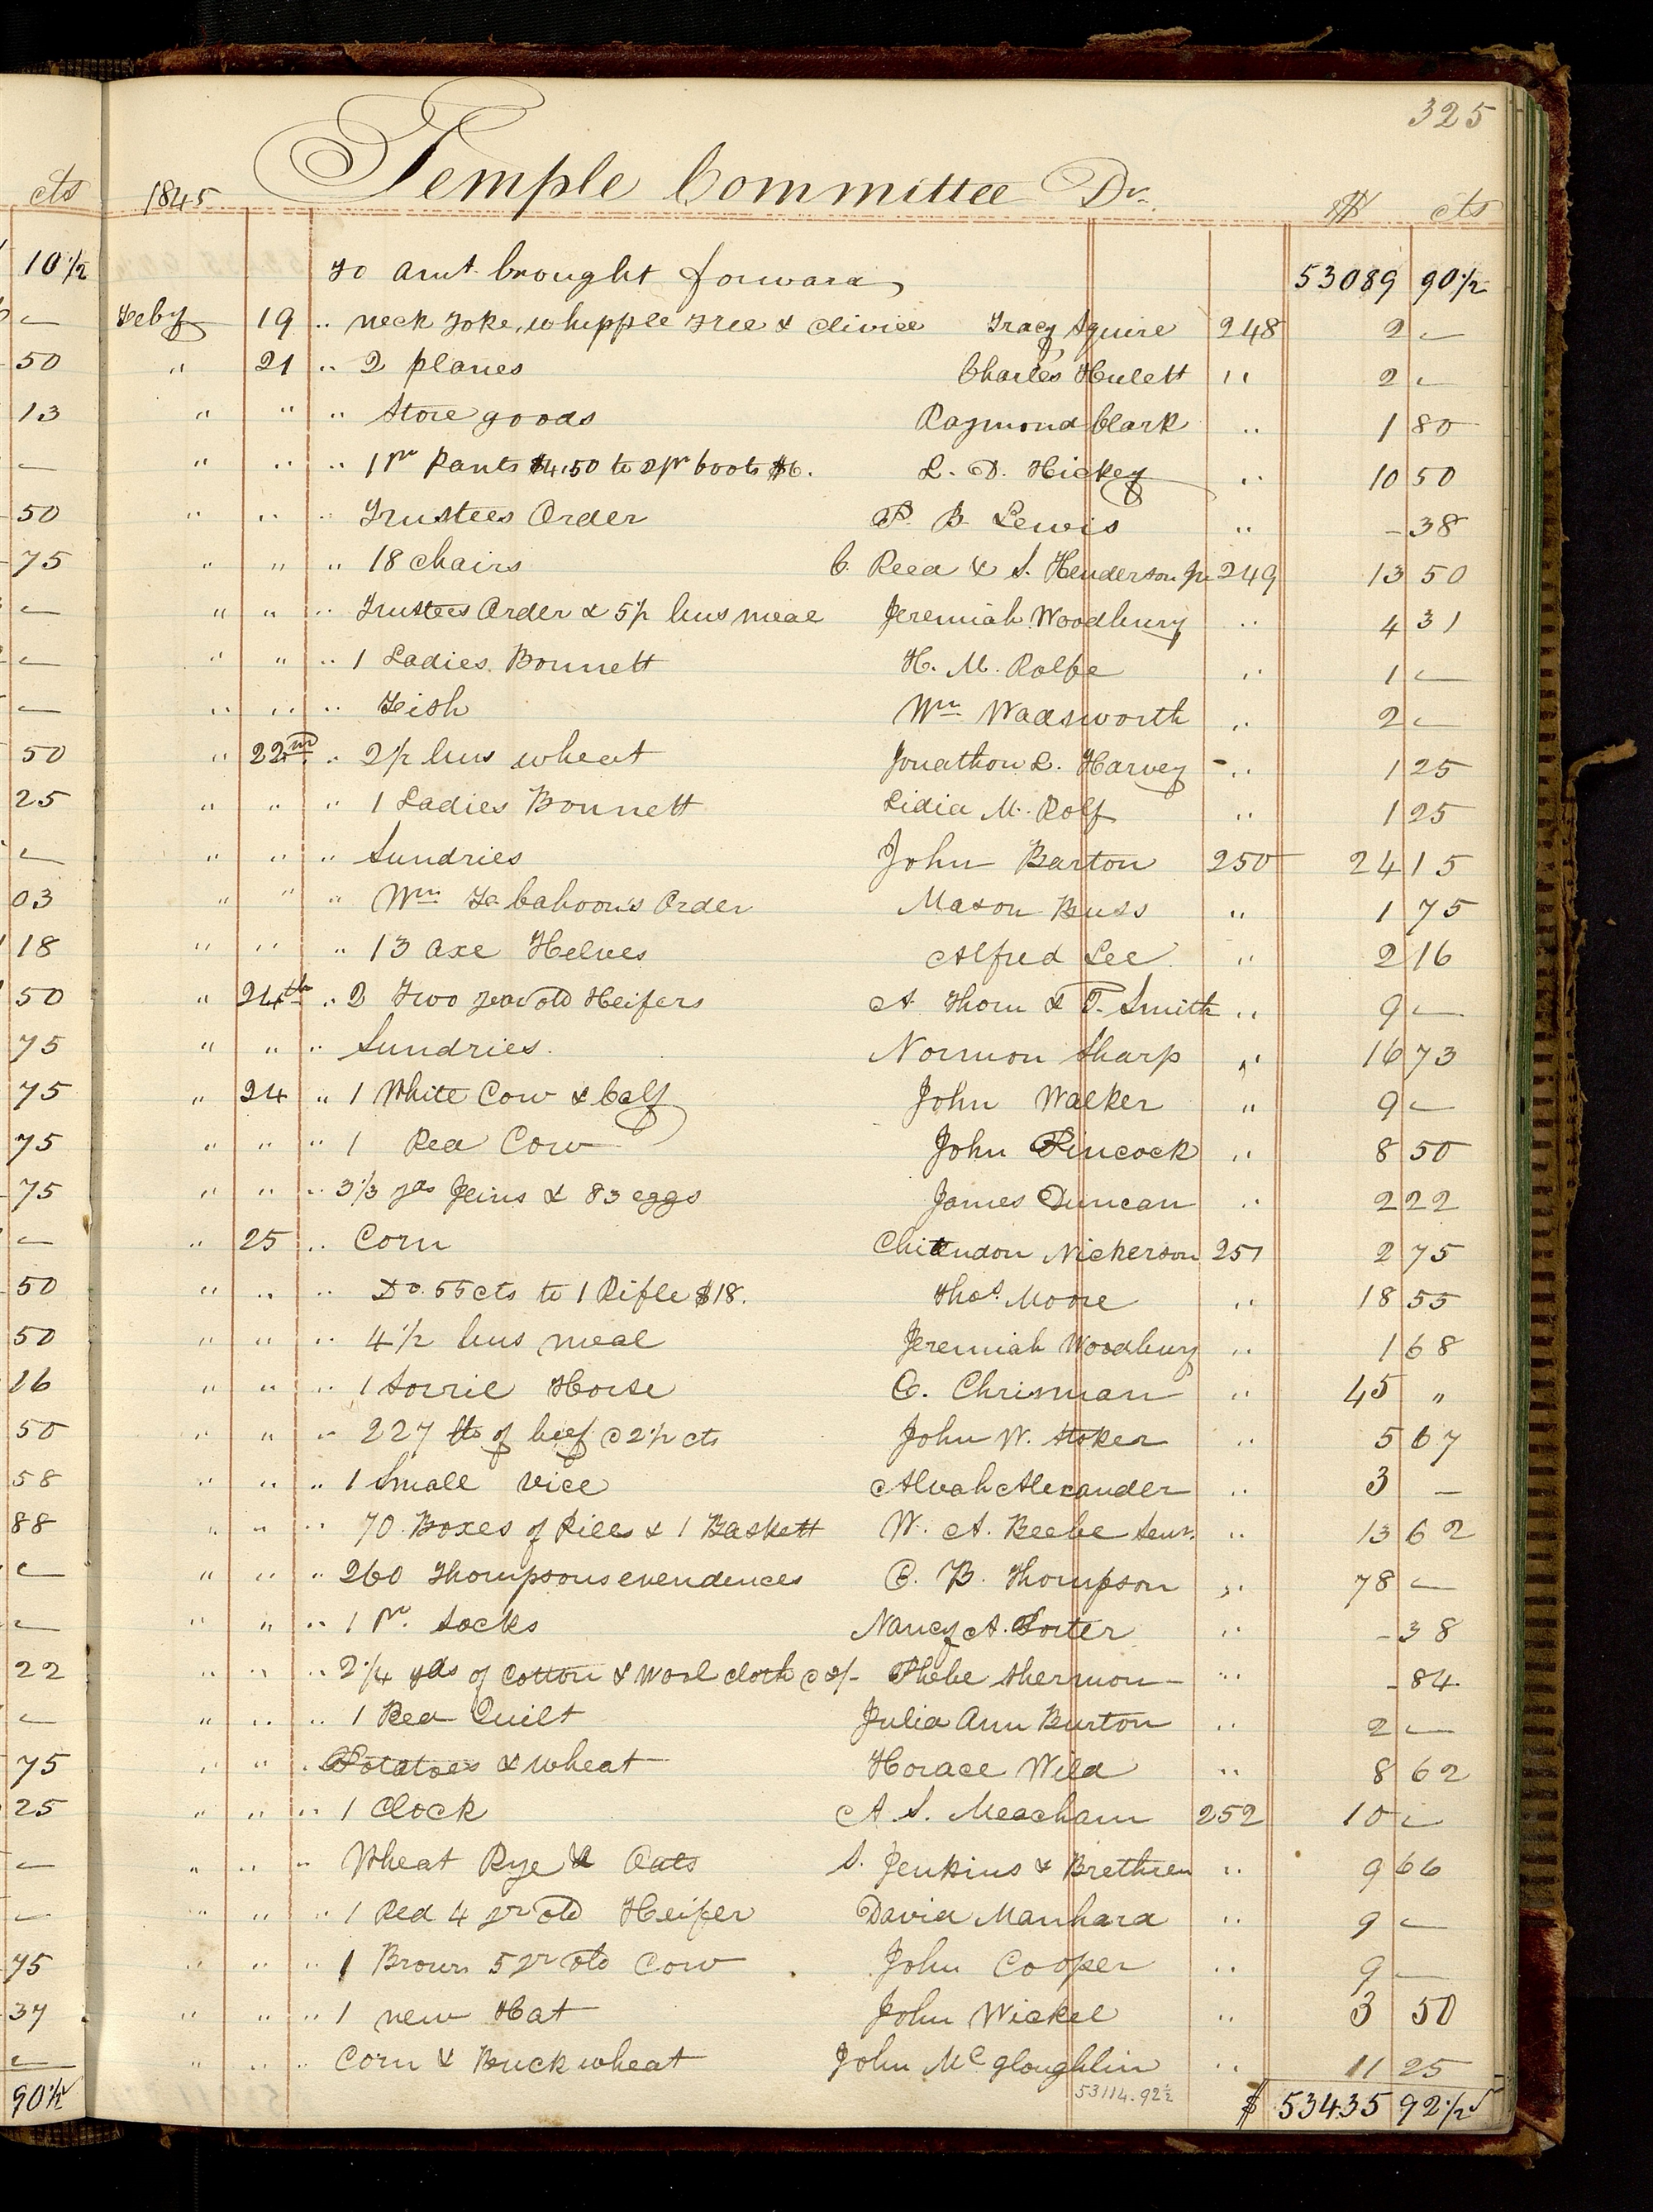 325
Temple Committee Dr.
1845 $ cts
To amt. brought forward 53089 90 1/2
Feby 19 " neck Yoke, whipple Tree & Clivice Tracy Squire 248 2 —
" 21 " 2 planes Charles Hulett " 2 —
" " " Store goods Raymond Clark " 1 80
" " " 1 pr Pants $4.50 to 2 pr boots $6. L. D. Hickey " 10 50
" " " Trustees Order P. B. Lewis " - 38
" " " 18 chairs C. Reed & S. Henderson Jr 249 13 50
" " " Trustees Order & 5 1/2 bus meal Jeremiah Woodbury " 4 31
" " " 1 Ladies Bonnett H. M. Rolfe " 1 —
" " " Fish Wm Wadsworth " 2 —
" 22nd " 2 1/2 bus wheat Jonathon L. Harvey " 1 25
" " " 1 Ladies Bonnett Lidia M. Rolf " 1 25
" " " Sundries John Barton 250 24 15
" " " Wm F. Cahoon's Order Mason Buss " 1 75
" " " 13 axe Helves Alfred Lee " 2 16
" 24th " 2 Two year old Heifers A Thorn & T. Smith " 9 —
" " " Sundries. Normon Sharp " 16 73
" 24 " 1 White Cow & Calf John Walker " 9 —
" " " 1 Red Cow John Pincock " 8 50
" " " 3 1/3 yds Jeins & 83 eggs James Duncan " 2 22
" 25 " Corn Chittendon Nickerson 251 2 75
" " " Do. 55 cts to 1 Rifle $18. Thos. Moore " 18 55
" " " 4 1/2 bus meal Jeremiah Woodbury " 1 68
" " " 1 Sorrie Horse C. Chrisman " 45 "
" " " 227 lbs of beef @ 2 1/2 cts John W. Stoker " 5 67
" " " 1 Small vice Alvah Alexander " 3 —
" " " 70 Boxes of Pills & 1 Baskett W. A. Beebe Senr. " 13 62
" " " 260 Thompsons evendences C. B. Thompson " 78 —
" " " 1 Pr. Socks Nancy A. Porter " - 38
" " " 2 1/4 yds of Cotton & Wool cloth @ 3/- Phebe Shermon " - 84
" " " 1 Bed Quilt Julia Ann Burton " 2 —
" " " Potatoes & wheat Horace Wild " 8 62
" " " 1 Clock A S. Meacham 252 10 —
" " " Wheat Rye & Oats S. Jenkins & Brethren " 9 66
" " " 1 Red 4 yr old Heifer David Manhard " 9 —
" " " 1 Brown 5 yr old Cow John Cooper " 9 —
" " " 1 new Hat John Wickel " 3 50
" " " Corn & Buckwheat John Mcgloughlin " 11 25
53114.92 1/2
$ 53435 92 1/2
cts
10 1/2
—
50
13
—
50
75
—
—
—
50
25
—
03
18
50
75
75
75
75
—
50
50
26
50
58
88
—
—
22
—
75
25
—
—
75
37
—
90 1/2